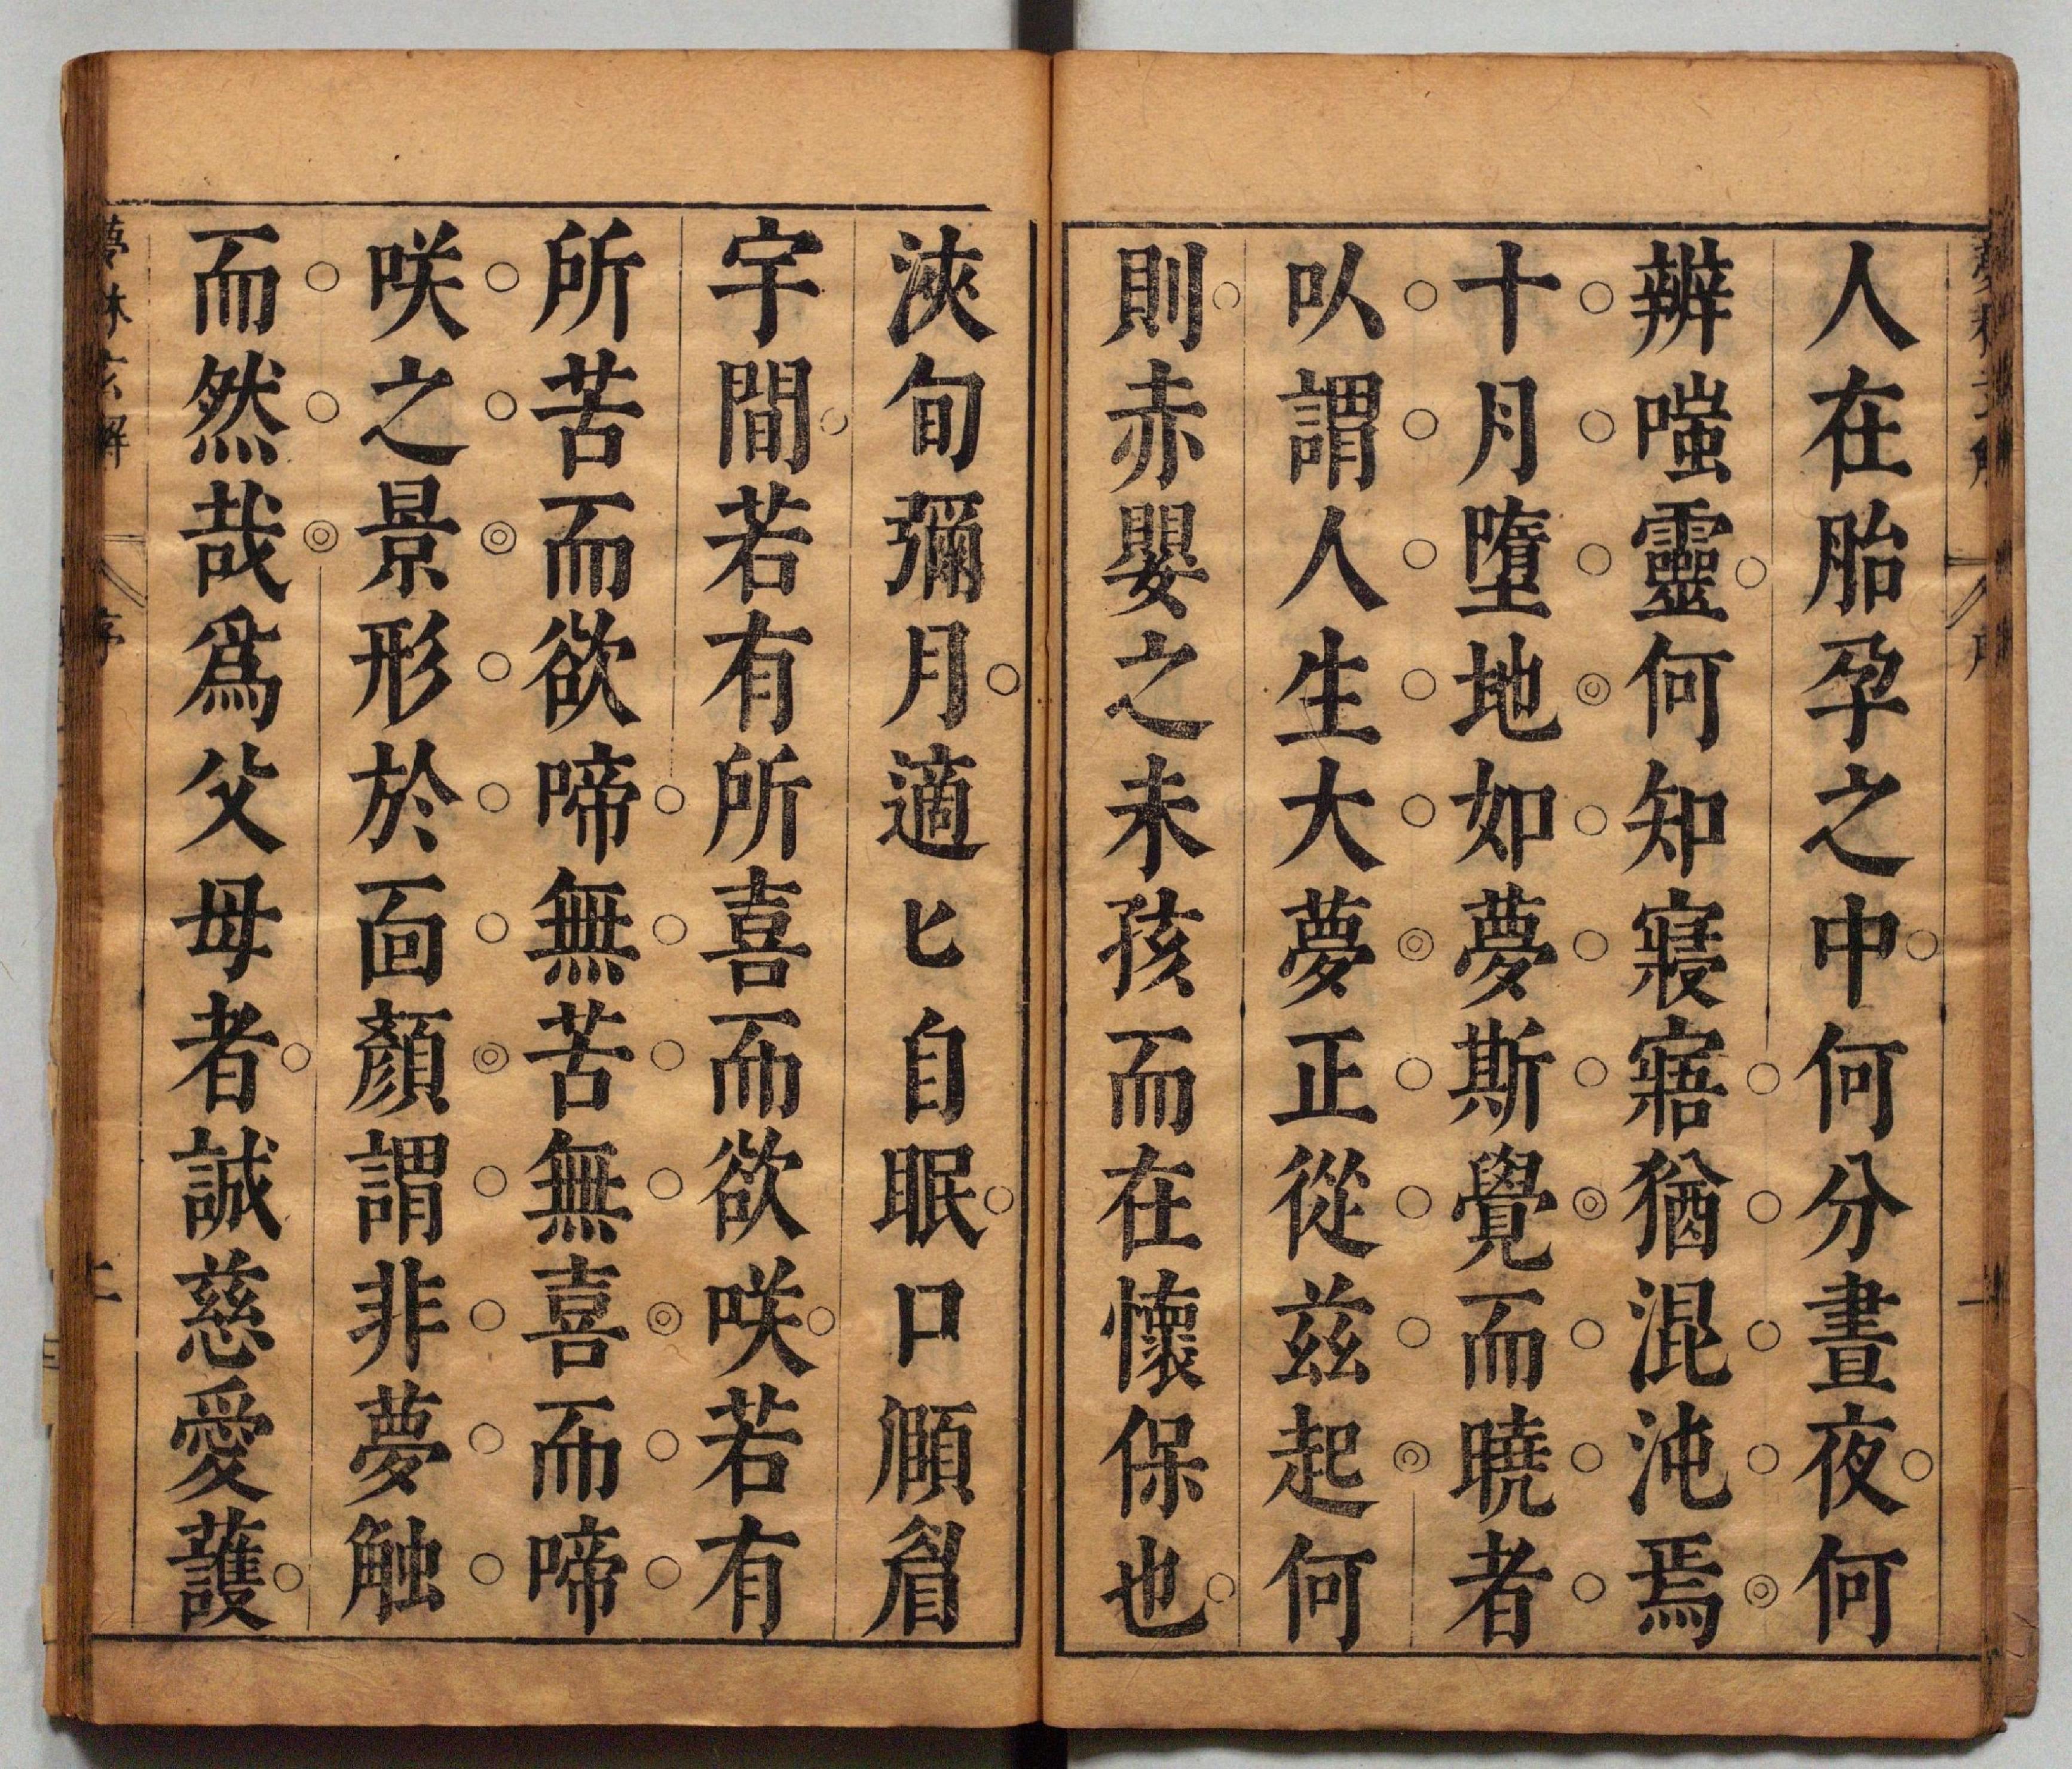 人在胎孕之中何分晝夜何
辨嗤靈何知寢寤猶混沌焉
十月墮地如夢斯覺而曉者
以謂人生大夢正從茲起何
則赤嬰之未孩而在懷保也
浹旬彌月適匕自眠口㖧眉
宇間若有所喜而欲咲若有
所苦而欲啼無苦無喜而啼
咲之景形於面顏謂非夢触
而然哉爲父母者誠慈愛護
夢林玄解
序
二